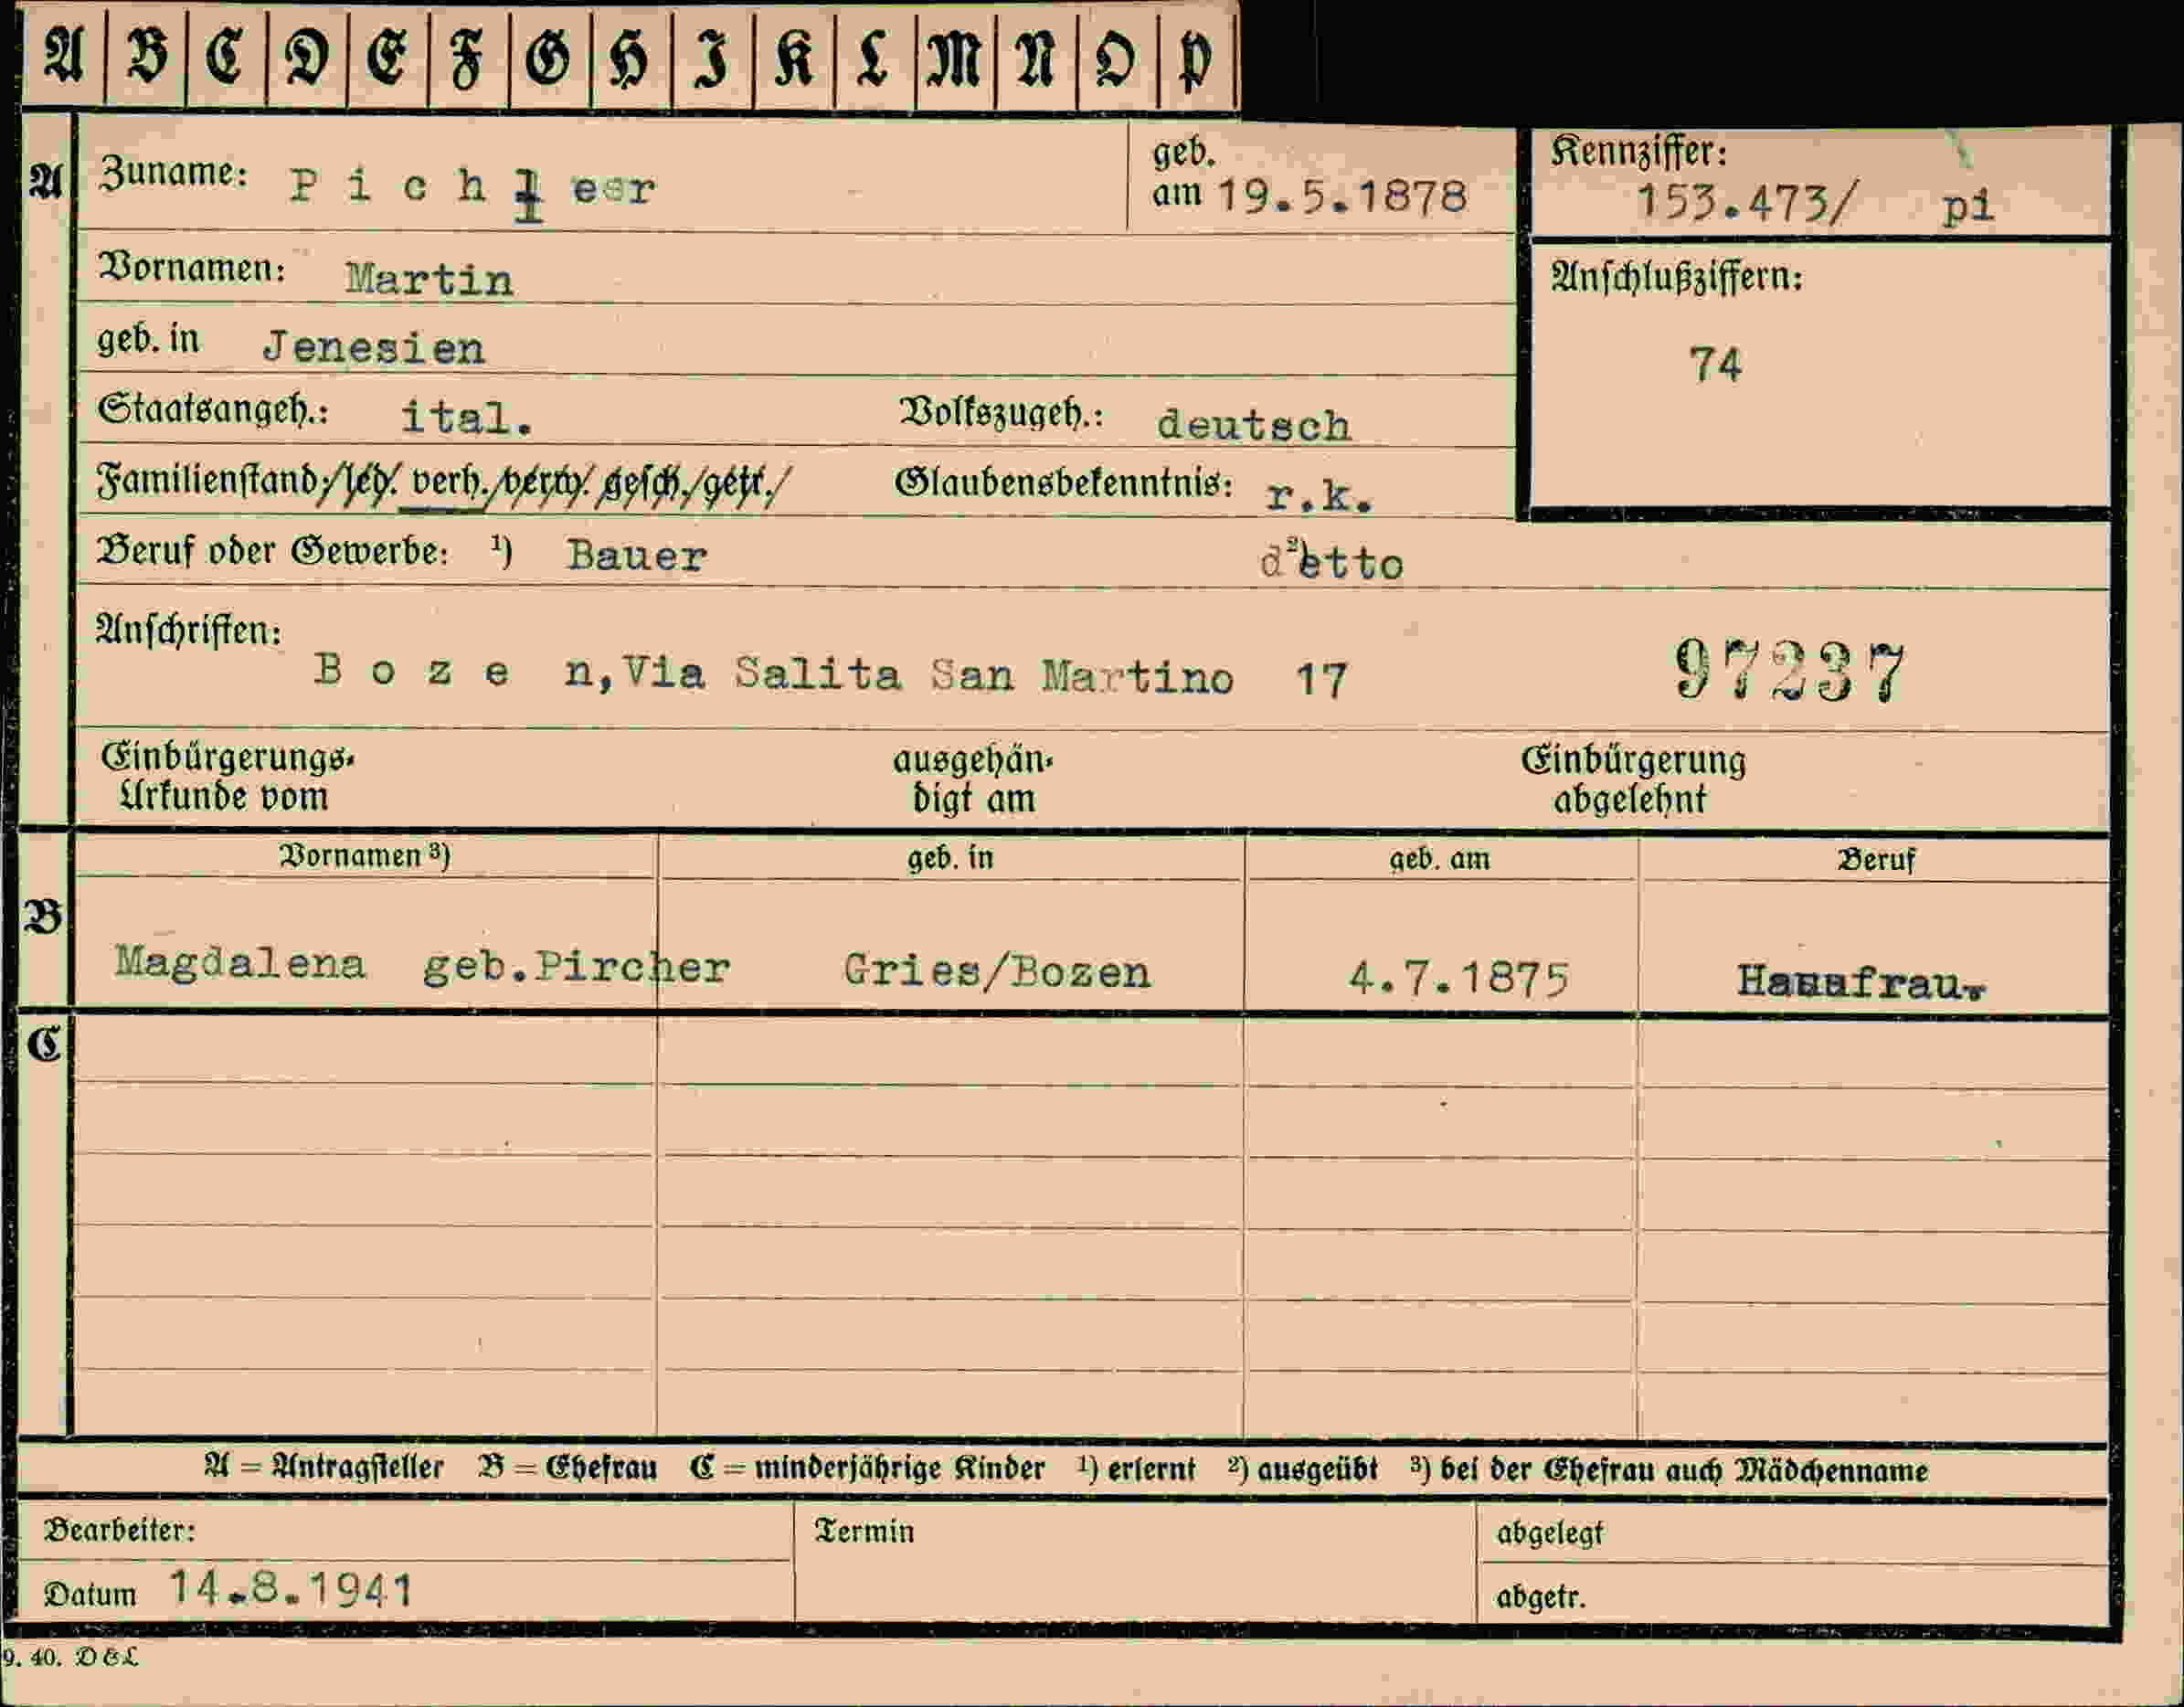 A B C D E F G H I K L M N O P
A Zuname: Pichler geb. am 19.5.1878 Kennziffer: 153.473/ pi
Vornamen: Martin Anschlußziffern:
geb. in Jenesien 74
Staatsangeh.: ital. Volkszugeh.: deutsch
Familienstand: led. verh. verw. gesch. getr. Glaubensbekenntnis: r.k.
Beruf oder Gewerbe: ¹) Bauer ²) detto
Anschriften:
Bozen, Via Salita San Martino 17 97237
Einbürgerungs- ausgehän- Einbürgerung
Urkunde vom digt am abgelehnt
Vornamen ³) geb. in geb. am Beruf
B
Magdalena geb.Pircher Gries/Bozen 4.7.1875 Hausfrau.
C
A = Antragsteller B = Ehefrau C = minderjährige Kinder ¹) erlernt ²) ausgeübt ³) bei der Ehefrau auch Mädchenname
Bearbeiter: Termin abgelegt
Datum 14.8.1941 abgetr.
9. 40. D&L